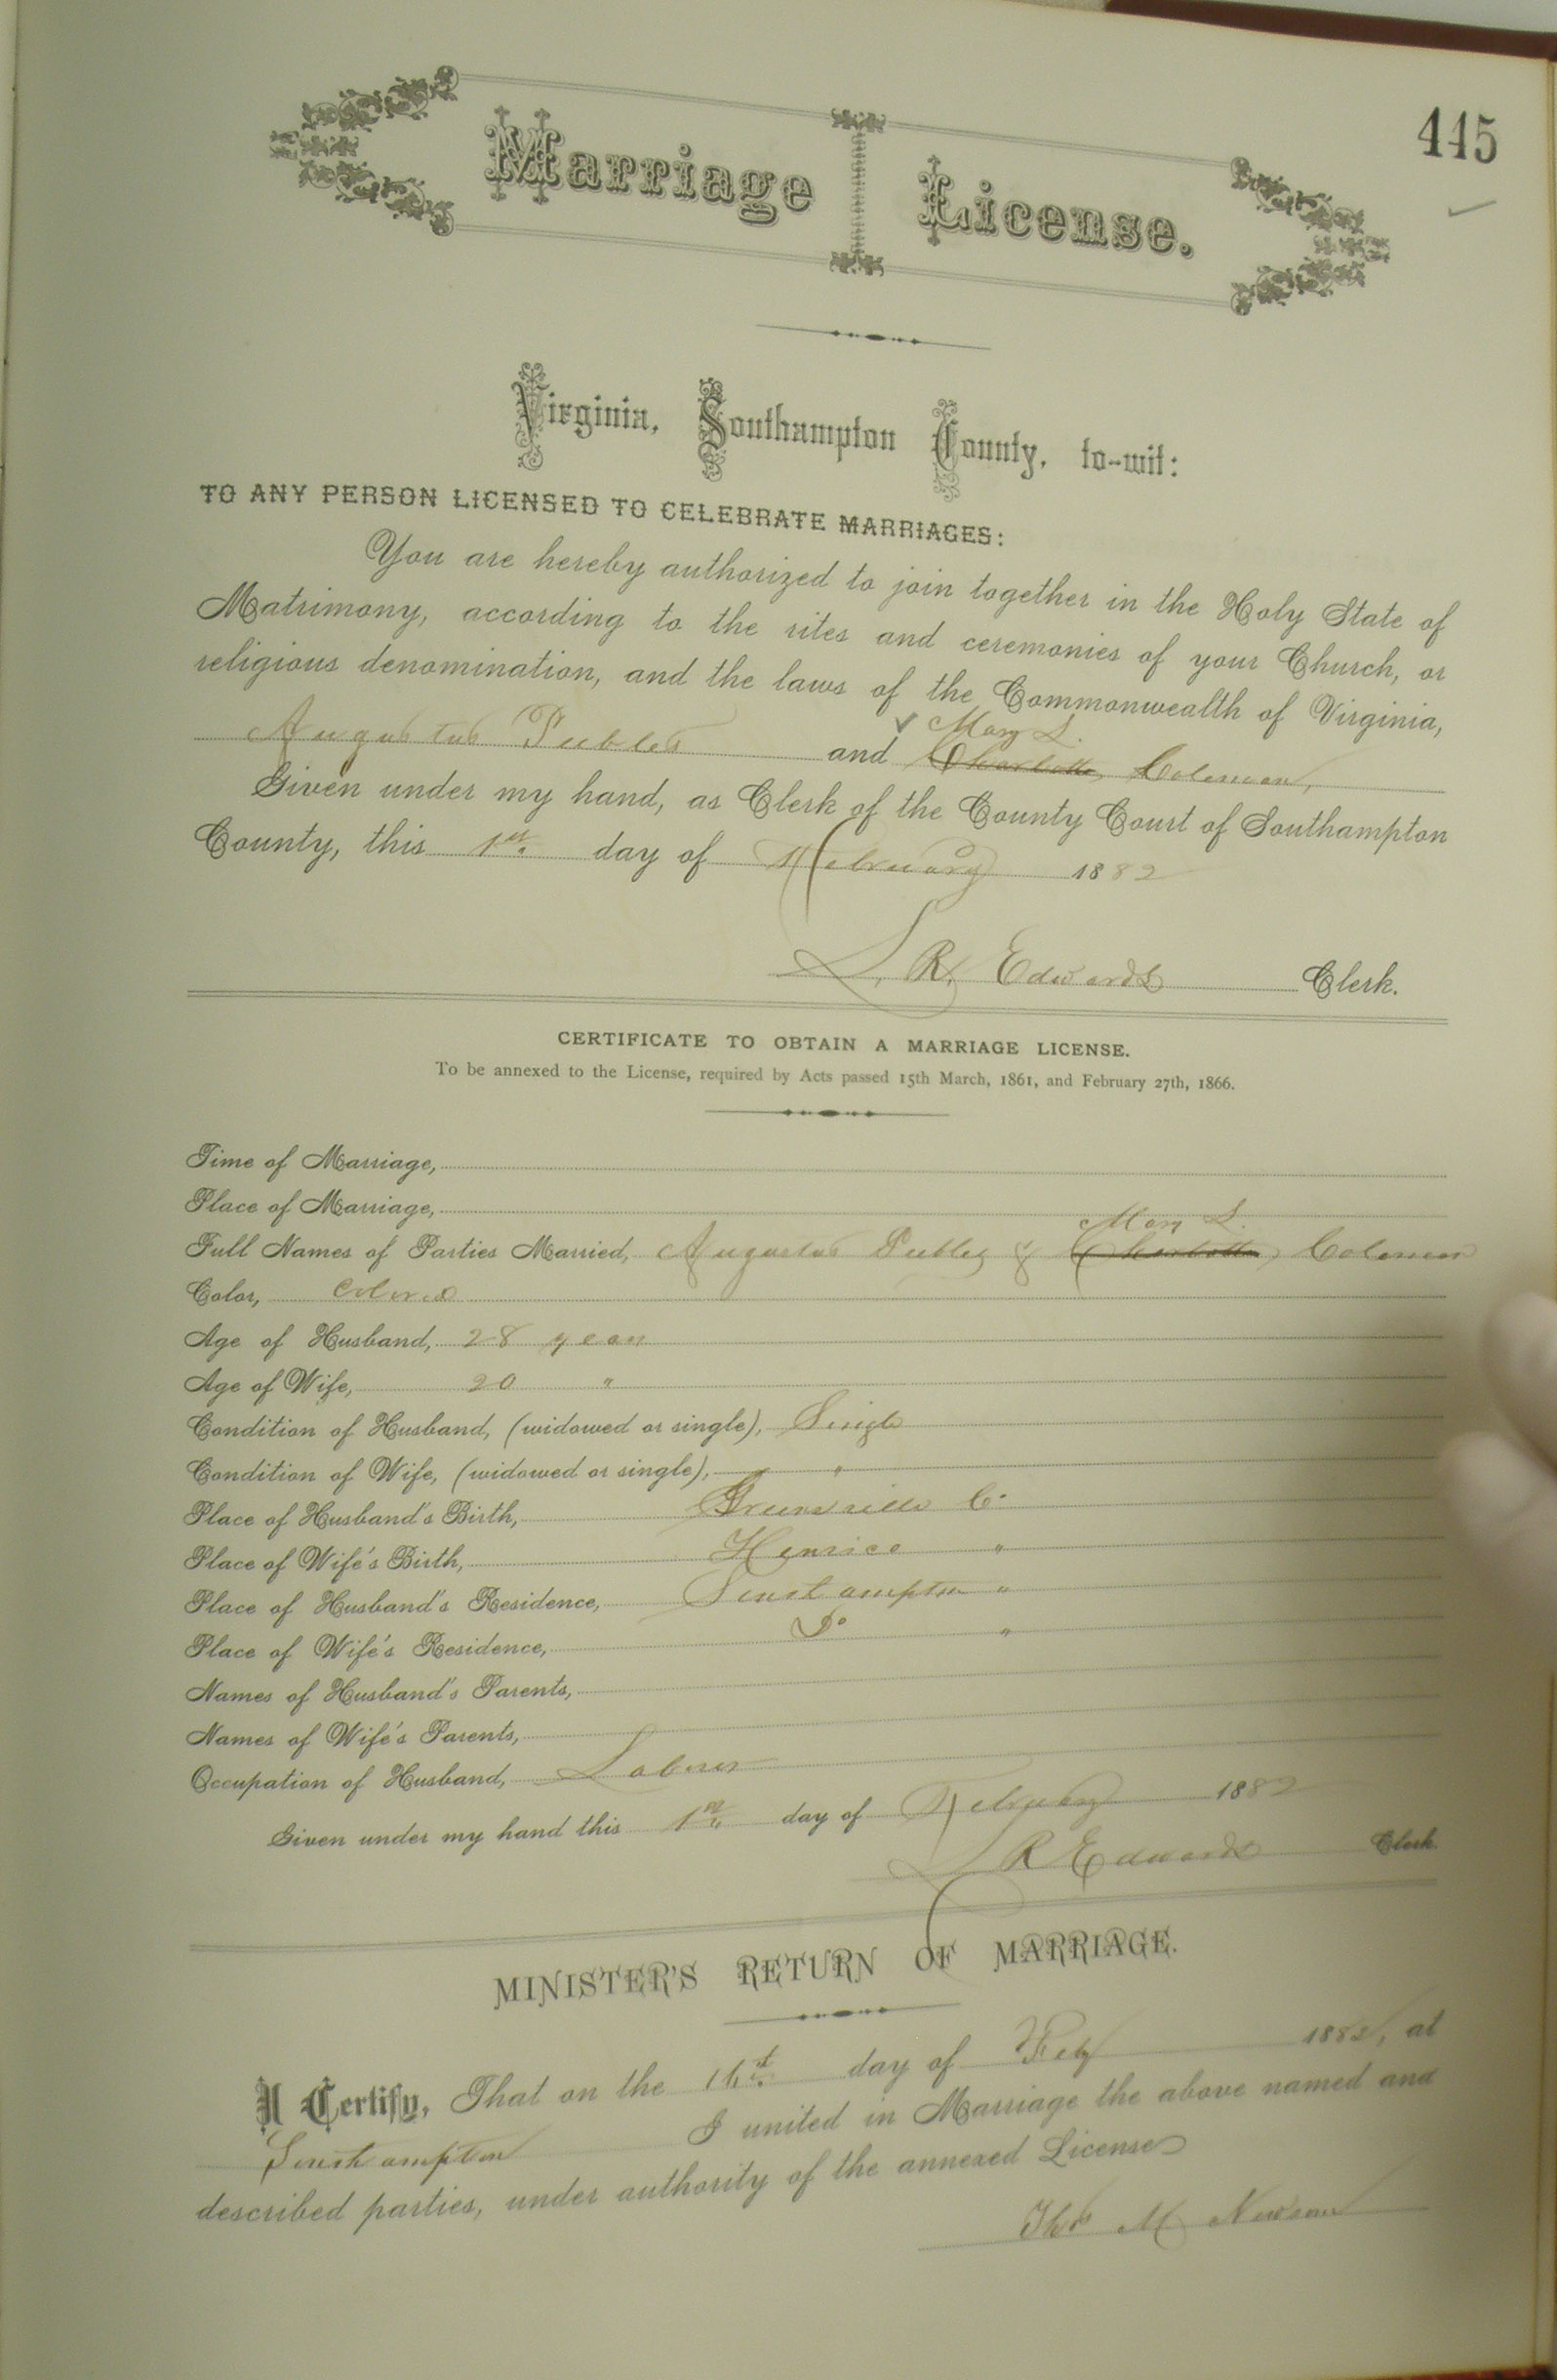 445
Marriage License.
Virginia, Southampton County, to-wit:
TO ANY PERSON LICENSED TO CELEBRATE MARRIAGES:
You are hereby authorized to join together in the Holy State of
Matrimony, according to the rites and ceremonies of your Church, or
religious denomination, and the laws of the Commonwealth of Virginia,
Mary L.
Augustus Peebles and Charlotte Coleman,
Given under my hand, as Clerk of the County Court of Southampton
County, this 1st day of February 1882
L. R. Edwards Clerk.
CERTIFICATE TO OBTAIN A MARRIAGE LICENSE.
To be annexed to the License, required by Acts passed 15th March, 1861, and February 27th, 1866.
Time of Marriage,
Place of Marriage,
Mary L.
Full Names of Parties Married, Augustus Peebles & Charlotte Coleman
Color, Colored
Age of Husband, 28 years
Age of Wife, 20 "
Condition of Husband, (widowed or single), Single
Condition of Wife, (widowed or single), "
Place of Husband's Birth, Greensville Co.
Place of Wife's Birth, Henrico "
Place of Husband's Residence, Southampton "
Place of Wife's Residence, Do "
Names of Husband's Parents,
Names of Wife's Parents,
Occupation of Husband, Laborer
Given under my hand this 1st day of February 1882
L R Edwards Clerk
MINISTER'S RETURN OF MARRIAGE.
I Certify, That on the day of Feby 1882, at
Southampton I united in Marriage the above named and
described parties, under authority of the annexed License
Thos M Newsom